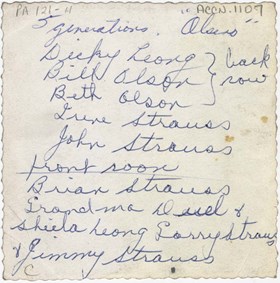 PA 121-11 "ACCN. 1109
5 generations. Olsens"
Decky Leong } back
Bill Olson } row
Beth Olson
Irene Strauss
John Strauss
front
Brian Strauss
Grandma &
Shiela Leong Larry Straus
& Jimmy Strauss
C